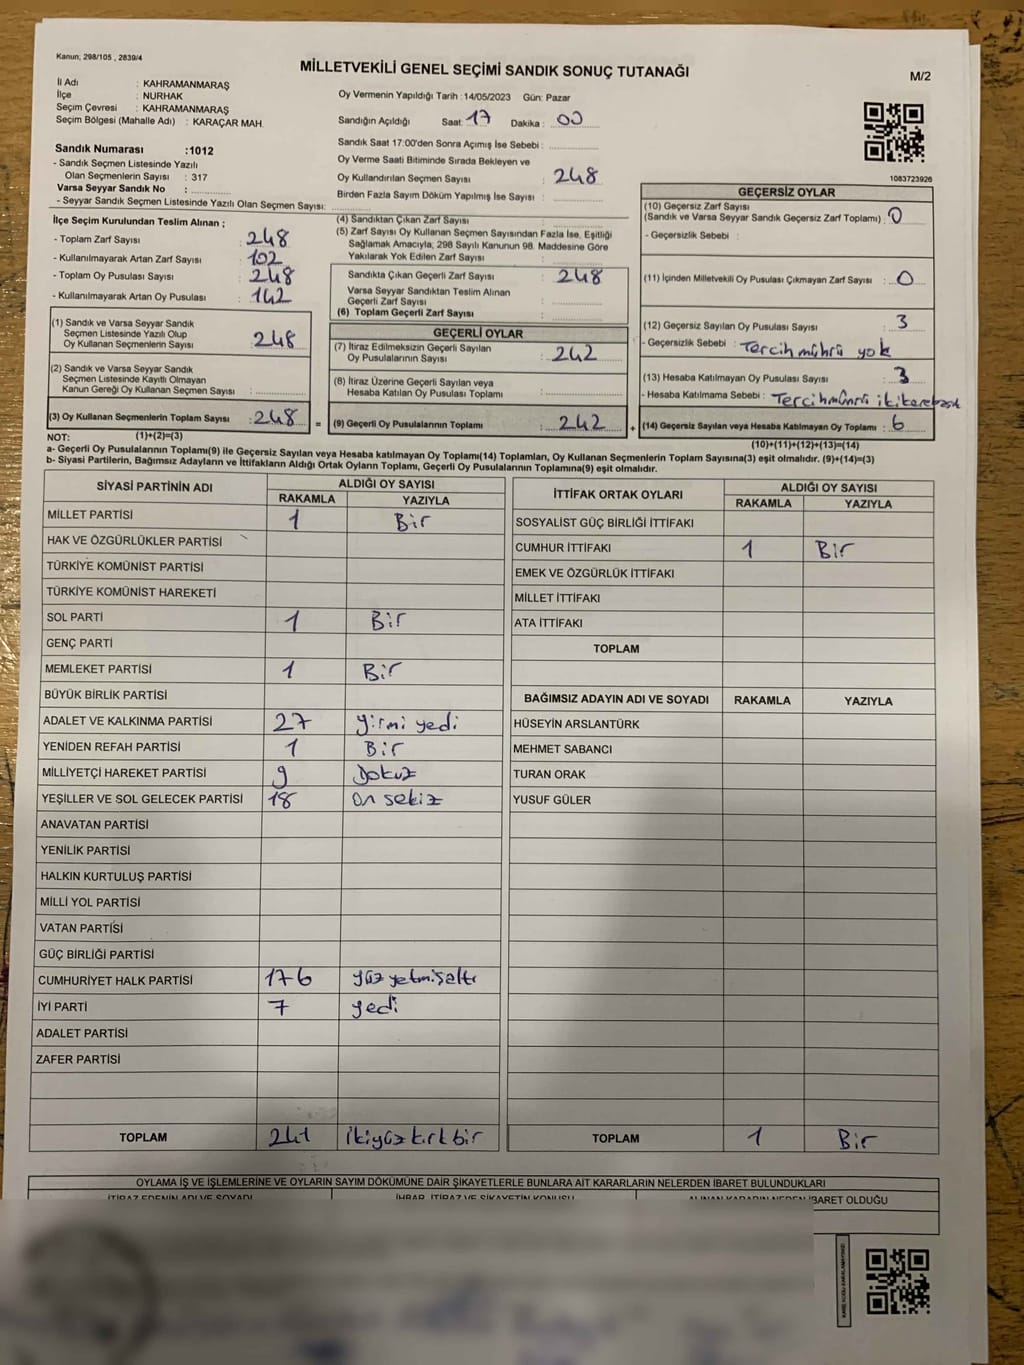 Kanun; 298/105 , 2839/4
MİLLETVEKİLİ GENEL SEÇİMİ SANDIK SONUÇ TUTANAĞI
M/2
İl Adı : KAHRAMANMARAŞ
İlçe : NURHAK
Seçim Çevresi : KAHRAMANMARAŞ
Seçim Bölgesi (Mahalle Adı) : KARAÇAR MAH.
Oy Vermenin Yapıldığı Tarih :14/05/2023 Gün: Pazar
Sandığın Açıldığı Saat: 17 Dakika : 00
Sandık Saat 17:00'den Sonra Açımış İse Sebebi :
Oy Verme Saati Bitiminde Sırada Bekleyen ve
Oy Kullandırılan Seçmen Sayısı : 248
Birden Fazla Sayım Döküm Yapılmış İse Sayısı :
Sandık Numarası :1012
- Sandık Seçmen Listesinde Yazılı
Olan Seçmenlerin Sayısı : 317
Varsa Seyyar Sandık No :
- Seyyar Sandık Seçmen Listesinde Yazılı Olan Seçmen Sayısı:
1083723926
İlçe Seçim Kurulundan Teslim Alınan ;
- Toplam Zarf Sayısı : 248
- Kullanılmayarak Artan Zarf Sayısı : 102
- Toplam Oy Pusulası Sayısı : 248
- Kullanılmayarak Artan Oy Pusulası : 142
(1) Sandık ve Varsa Seyyar Sandık
Seçmen Listesinde Yazılı Olup
Oy Kullanan Seçmenlerin Sayısı : 248
(2) Sandık ve Varsa Seyyar Sandık
Seçmen Listesinde Kayıtlı Olmayan
Kanun Gereği Oy Kullanan Seçmen Sayısı :
(3) Oy Kullanan Seçmenlerin Toplam Sayısı : 248 =
(1)+(2)=(3)
(4) Sandıktan Çıkan Zarf Sayısı :
(5) Zarf Sayısı Oy Kullanan Seçmen Sayısından Fazla İse, Eşitliği
Sağlamak Amacıyla, 298 Sayılı Kanunun 98. Maddesine Göre
Yakılarak Yok Edilen Zarf Sayısı :
Sandıkta Çıkan Geçerli Zarf Sayısı : 248
Varsa Seyyar Sandıktan Teslim Alınan
Geçerli Zarf Sayısı :
(6) Toplam Geçerli Zarf Sayısı :
GEÇERLİ OYLAR
(7) İtiraz Edilmeksizin Geçerli Sayılan
Oy Pusulalarının Sayısı : 242
(8) İtiraz Üzerine Geçerli Sayılan veya
Hesaba Katılan Oy Pusulası Toplamı :
(9) Geçerli Oy Pusulalarının Toplamı : 242 +
GEÇERSİZ OYLAR
(10) Geçersiz Zarf Sayısı
(Sandık ve Varsa Seyyar Sandık Geçersiz Zarf Toplamı) : 0
- Geçersizlik Sebebi :
(11) İçinden Milletvekili Oy Pusulası Çıkmayan Zarf Sayısı : 0
(12) Geçersiz Sayılan Oy Pusulası Sayısı : 3
- Geçersizlik Sebebi : Tercih mührü yok
(13) Hesaba Katılmayan Oy Pusulası Sayısı : 3
- Hesaba Katılmama Sebebi :
(14) Geçersiz Sayılan veya Hesaba Katılmayan Oy Toplamı : 6
(10)+(11)+(12)+(13)=(14)
NOT:
a- Geçerli Oy Pusulalarının Toplamı(9) ile Geçersiz Sayılan veya Hesaba katılmayan Oy Toplamı(14) Toplamları, Oy Kullanan Seçmenlerin Toplam Sayısına(3) eşit olmalıdır. (9)+(14)=(3)
b- Siyasi Partilerin, Bağımsız Adayların ve İttifakların Aldığı Ortak Oyların Toplamı, Geçerli Oy Pusulalarının Toplamına(9) eşit olmalıdır.
SİYASİ PARTİNİN ADI ALDIĞI OY SAYISI
RAKAMLA YAZIYLA
MİLLET PARTİSİ 1 Bir
HAK VE ÖZGÜRLÜKLER PARTİSİ
TÜRKİYE KOMÜNİST PARTİSİ
TÜRKİYE KOMÜNİST HAREKETİ
SOL PARTİ 1 Bir
GENÇ PARTİ
MEMLEKET PARTİSİ 1 Bir
BÜYÜK BİRLİK PARTİSİ
ADALET VE KALKINMA PARTİSİ 27 yirmi yedi
YENİDEN REFAH PARTİSİ 1 Bir
MİLLİYETÇİ HAREKET PARTİSİ 9 Dokuz
YEŞİLLER VE SOL GELECEK PARTİSİ 18 on sekiz
ANAVATAN PARTİSİ
YENİLİK PARTİSİ
HALKIN KURTULUŞ PARTİSİ
MİLLİ YOL PARTİSİ
VATAN PARTİSİ
GÜÇ BİRLİĞİ PARTİSİ
CUMHURİYET HALK PARTİSİ 176 yüz yetmişaltı
İYİ PARTİ 7 yedi
ADALET PARTİSİ
ZAFER PARTİSİ
TOPLAM 241 ikiyüz kırk bir
İTTİFAK ORTAK OYLARI ALDIĞI OY SAYISI
RAKAMLA YAZIYLA
SOSYALİST GÜÇ BİRLİĞİ İTTİFAKI
CUMHUR İTTİFAKI 1 Bir
EMEK VE ÖZGÜRLÜK İTTİFAKI
MİLLET İTTİFAKI
ATA İTTİFAKI
TOPLAM
BAĞIMSIZ ADAYIN ADI VE SOYADI RAKAMLA YAZIYLA
HÜSEYİN ARSLANTÜRK
MEHMET SABANCI
TURAN ORAK
YUSUF GÜLER
TOPLAM 1 Bir
OYLAMA İŞ VE İŞLEMLERİNE VE OYLARIN SAYIM DÖKÜMÜNE DAİR ŞİKAYETLERLE BUNLARA AİT KARARLARIN NELERDEN İBARET BULUNDUKLARI
İTİRAZ EDENİN ADI VE SOYADI İHBAR, İTİRAZ VE ŞİKAYETİN KONUSU ALINAN KARARIN NEDEN İBARET OLDUĞU